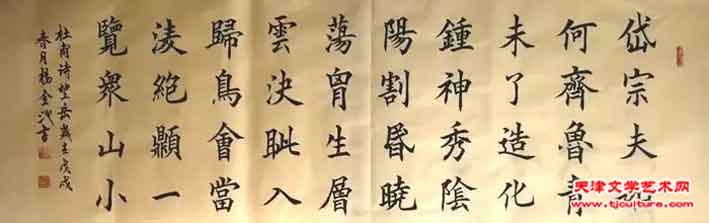 岱宗夫如
何齊魯青
未了造化
鍾神秀陰
陽割昬曉
蕩胷生層
雲決眦入
歸鳥會當
淩絕顛一
覽衆山小
杜甫诗望岳歲在戊戌
春月楊金池書
天津文学艺术网
www.tjculture.com